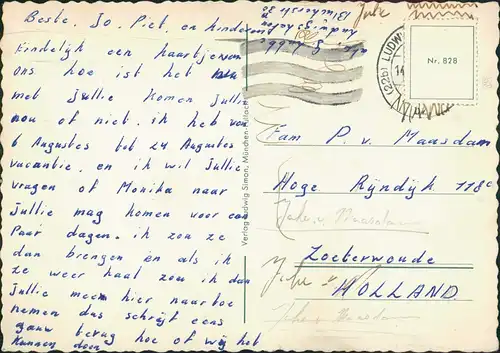 Beste. Jo. Piet, en kinderen
Eindelijk een kaartje van
ons hoe is het nu
met Jullie Komen Jullie
nou of niet. ik heb van
6 Augustes tot 24 Augustes
vacantie. en ik wil Jullie
vragen of Monika naar
Jullie mag komen voor een
Paar dagen. ik zou ze
dan brengen en als ik
ze weer haal zou ik dan
Jullie meen hier naar toe
nemen dus schrijf eens
gauw terug hoe of wij het
Kunnen doen
Verlag Ludwig Simon, München-Pullach
(22b) LUDW
14
Nr. 828
Fam P. v. Maasdam
Hoge Rijndijk 118c
Zoeterwoude
HOLLAND